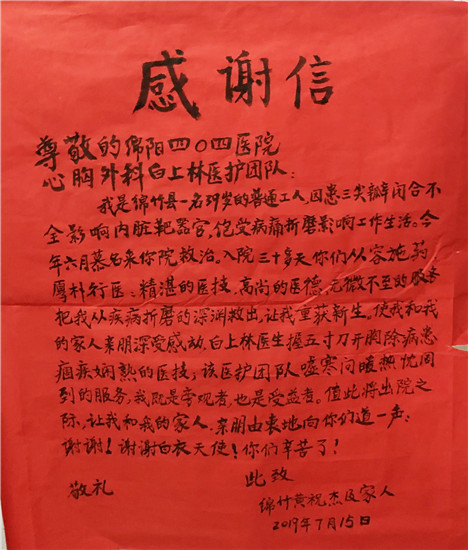 感谢信
尊敬的绵阳四〇四医院
心胸外科白上林医护团队：
我是绵竹县一名59岁的普通工人，因患三类瓣闭合不
全影响内脏靶器官，饱受病痛折磨影响工作生活。今
年六月慕名来你院救治。入院三十多天你们从容施药
厚朴行医：精湛的医技，高尚的医德，无微不至的服务
把我从疾病折磨的深渊救出，让我重获新生。使我和我
的家人亲朋深受感动。白上林医生握五寸刀开胸除病患
痼疾娴熟的医技；该医护团队嘘寒问暖热忱周
到的服务，我既是旁观者，也是受益者。值此将出院之
际，让我和我的家人、亲朋由衷地向你们道一声：
谢谢！谢谢白衣天使！你们辛苦了！
此致
敬礼
绵竹黄祝杰及家人
2019年7月15日